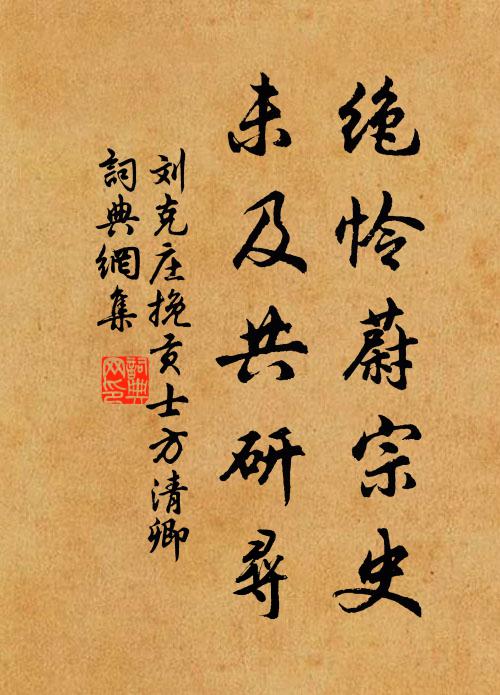 绝怜蔚宗史
未及共研寻
刘克庄挽贡士方清卿
词典網集
詞典网印